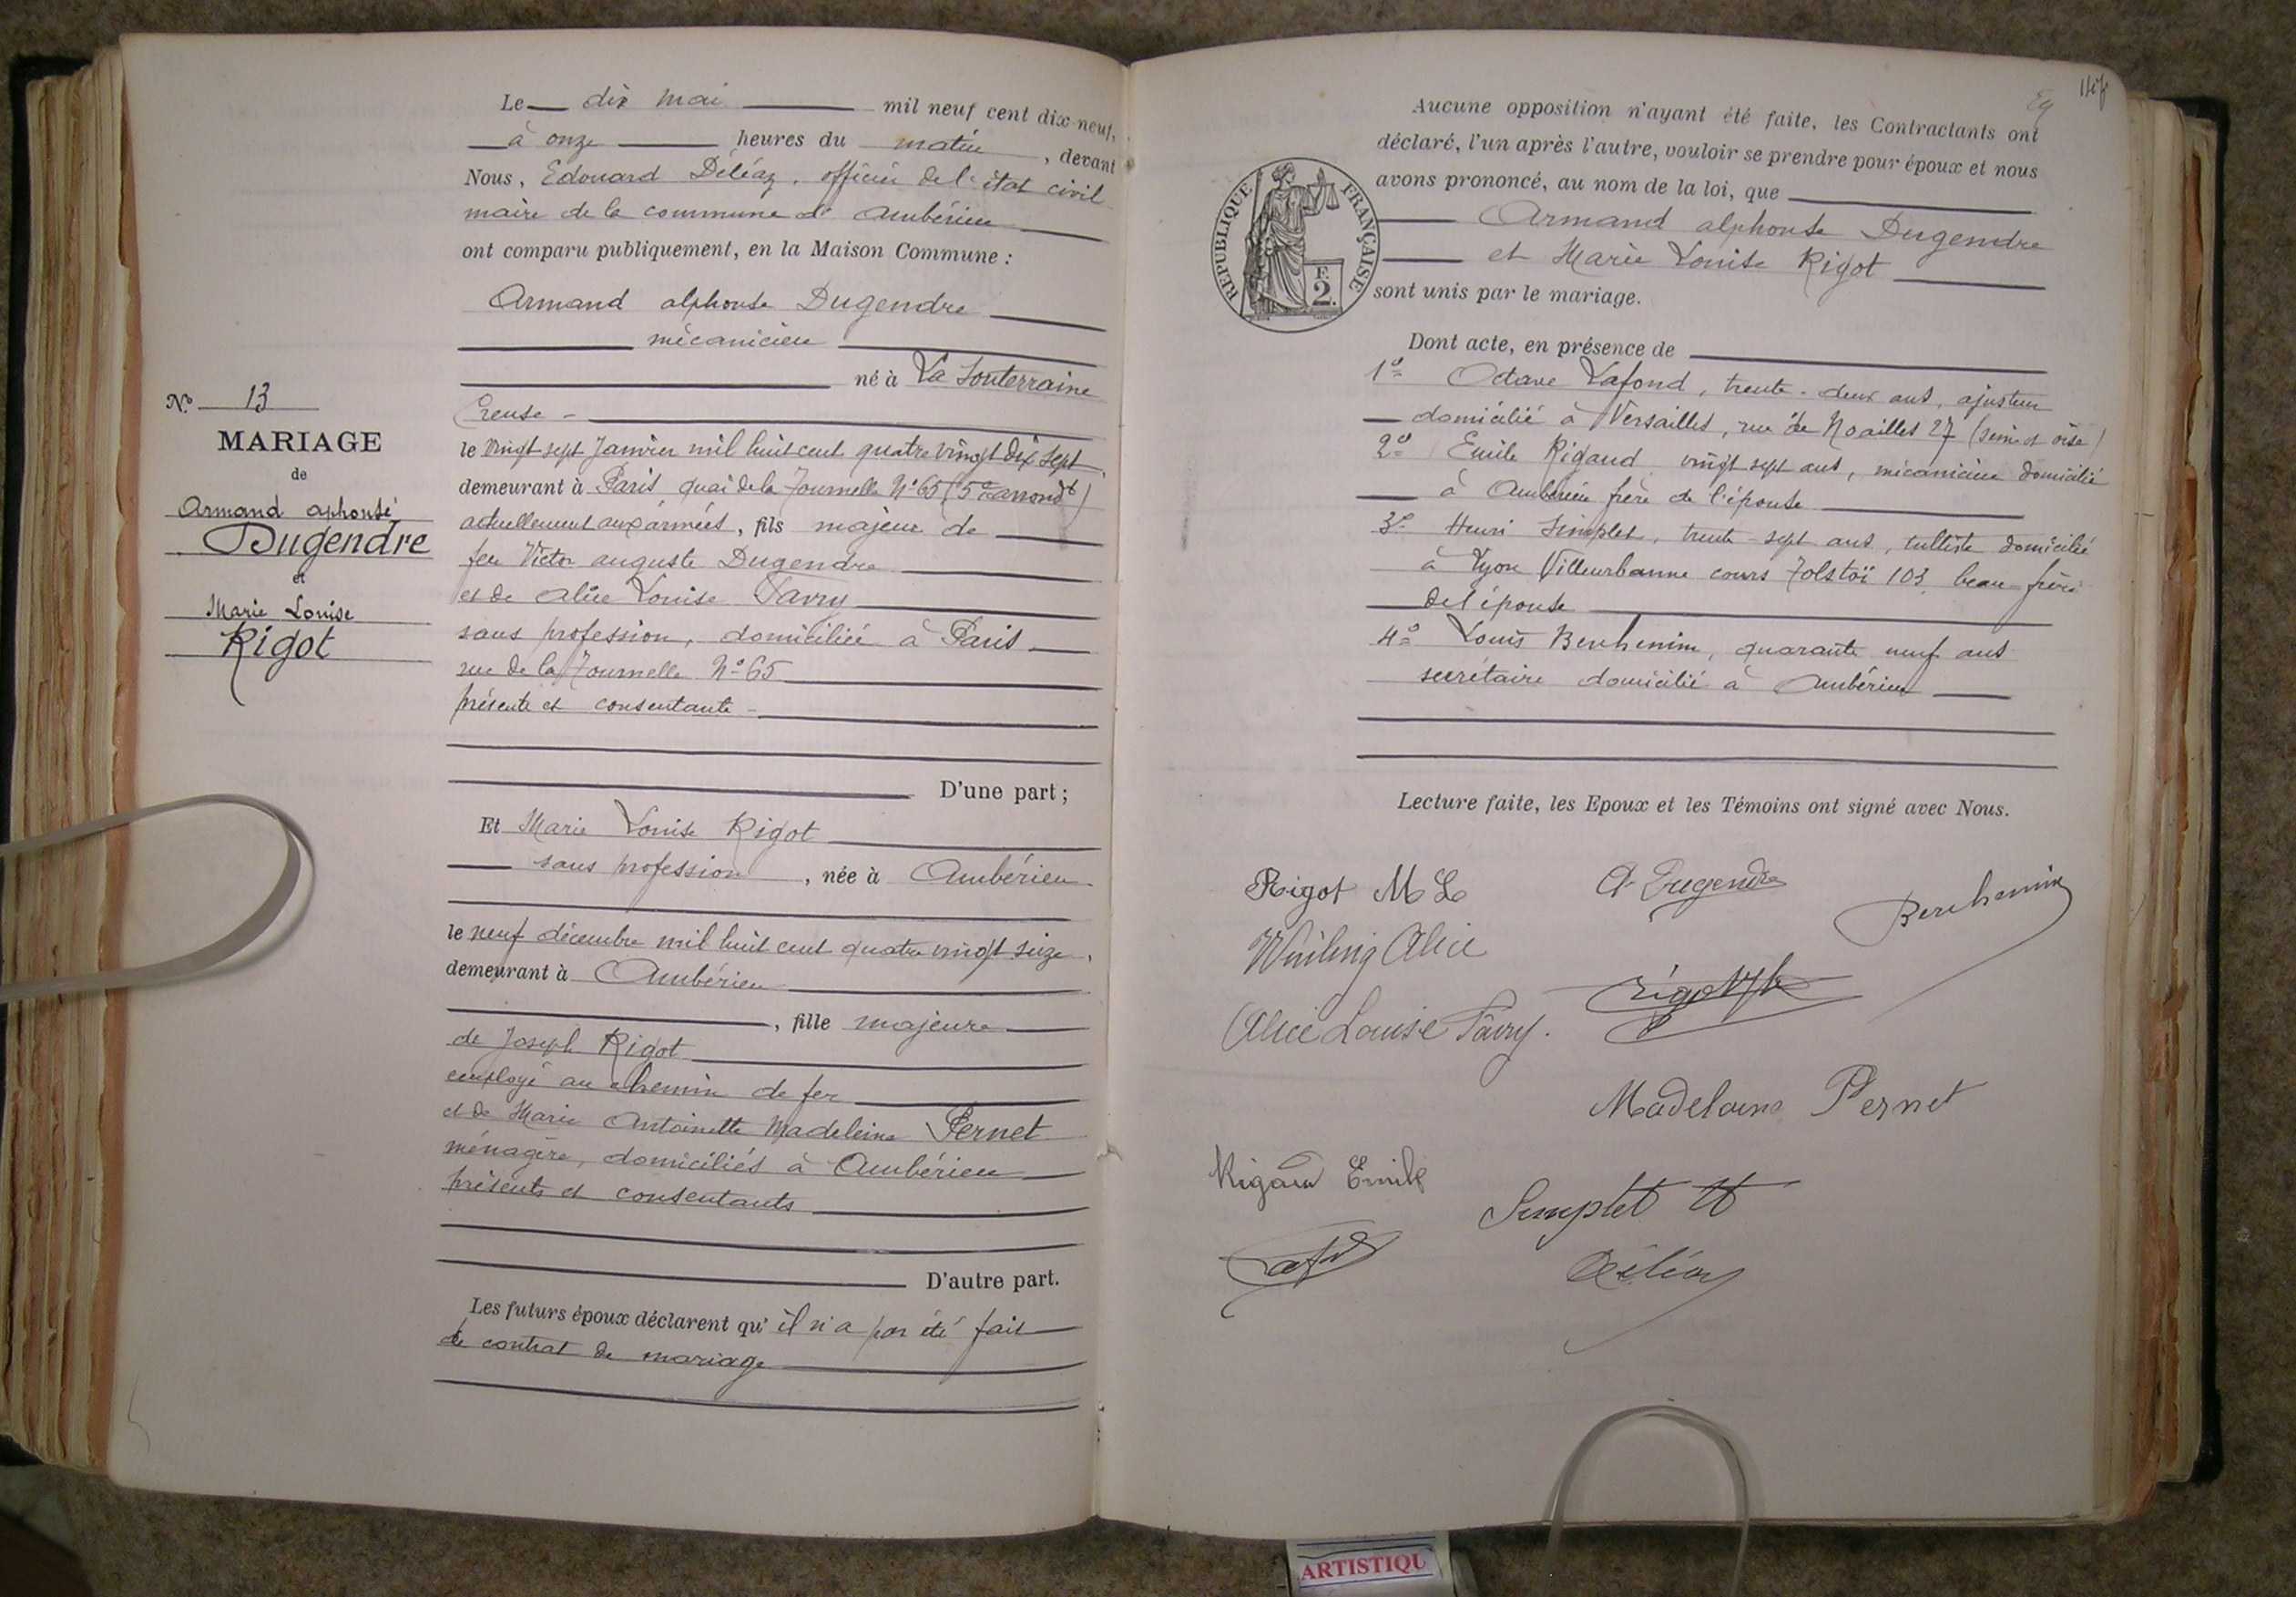 Le dix mai mil neuf cent dix-neuf,
à onze heures du matin, devant
Nous, Edouard Déléaz, officier de l'état civil
maire de la commune d' Ambérieu
ont comparu publiquement, en la Maison Commune :
Armand alphonse Dugendre
mécanicien
né à La Souterraine
Creuse -
le vingt sept Janvier mil huit cent quatre vingt dix sept,
demeurant à Paris, quai de la Tournelle N° 65 (5e arrondt)
actuellement aux armées, fils majeur de
feu Victor auguste Dugendre
et de alice Louise Favry
sans profession, domiciliée à Paris
rue de la Tournelle N° 65
présente et consentante -
D'une part ;
Et Marie Louise Rigot
sans profession, née à Ambérieu
le neuf décembre mil huit cent quatre vingt seize,
demeurant à Ambérieu
, fille majeure
de Joseph Rigot
employé au chemin de fer
et de Marie Antoinette Madeleine Pernet
ménagère, domiciliés à Ambérieu
présents et consentants
D'autre part.
Les futurs époux déclarent qu' il n'a pas été fait
de contrat de mariage
N° 13
MARIAGE
de
Armand aphonse
Dugendre
et
Marie Louise
Rigot
Aucune opposition n'ayant été faite, les Contractants ont
déclaré, l'un après l'autre, vouloir se prendre pour époux et nous
avons prononcé, au nom de la loi, que
Armand alphonse Dugendre
et Marie Louise Rigot
sont unis par le mariage.
RÉPUBLIQUE FRANÇAISE
F.
2.
Dont acte, en présence de
1° Octave Lafond, trente-deux ans, ajusteur
domicilié à Versailles, rue de Noailles 27 (seine et oise)
2° Emile Rigaud, vingt sept ans, mécanicien domicilié
à Ambérieu frère de l'épouse
3° Henri Simplet, trente-sept ans, tulliste domicilié
à Lyon Villeurbanne cours Tolstoï 103, beau-frère
de l'épouse
4° Louis Berchemin, quarante neuf ans
secrétaire domicilié à Ambérieu
Lecture faite, les Epoux et les Témoins ont signé avec Nous.
Rigot M L
A Dugendre
Berchemin
Alice
Alice Louise Favry.
Madeleine Pernet
Rigaud Emile
Simplet H
Déléaz
ARTISTIQU